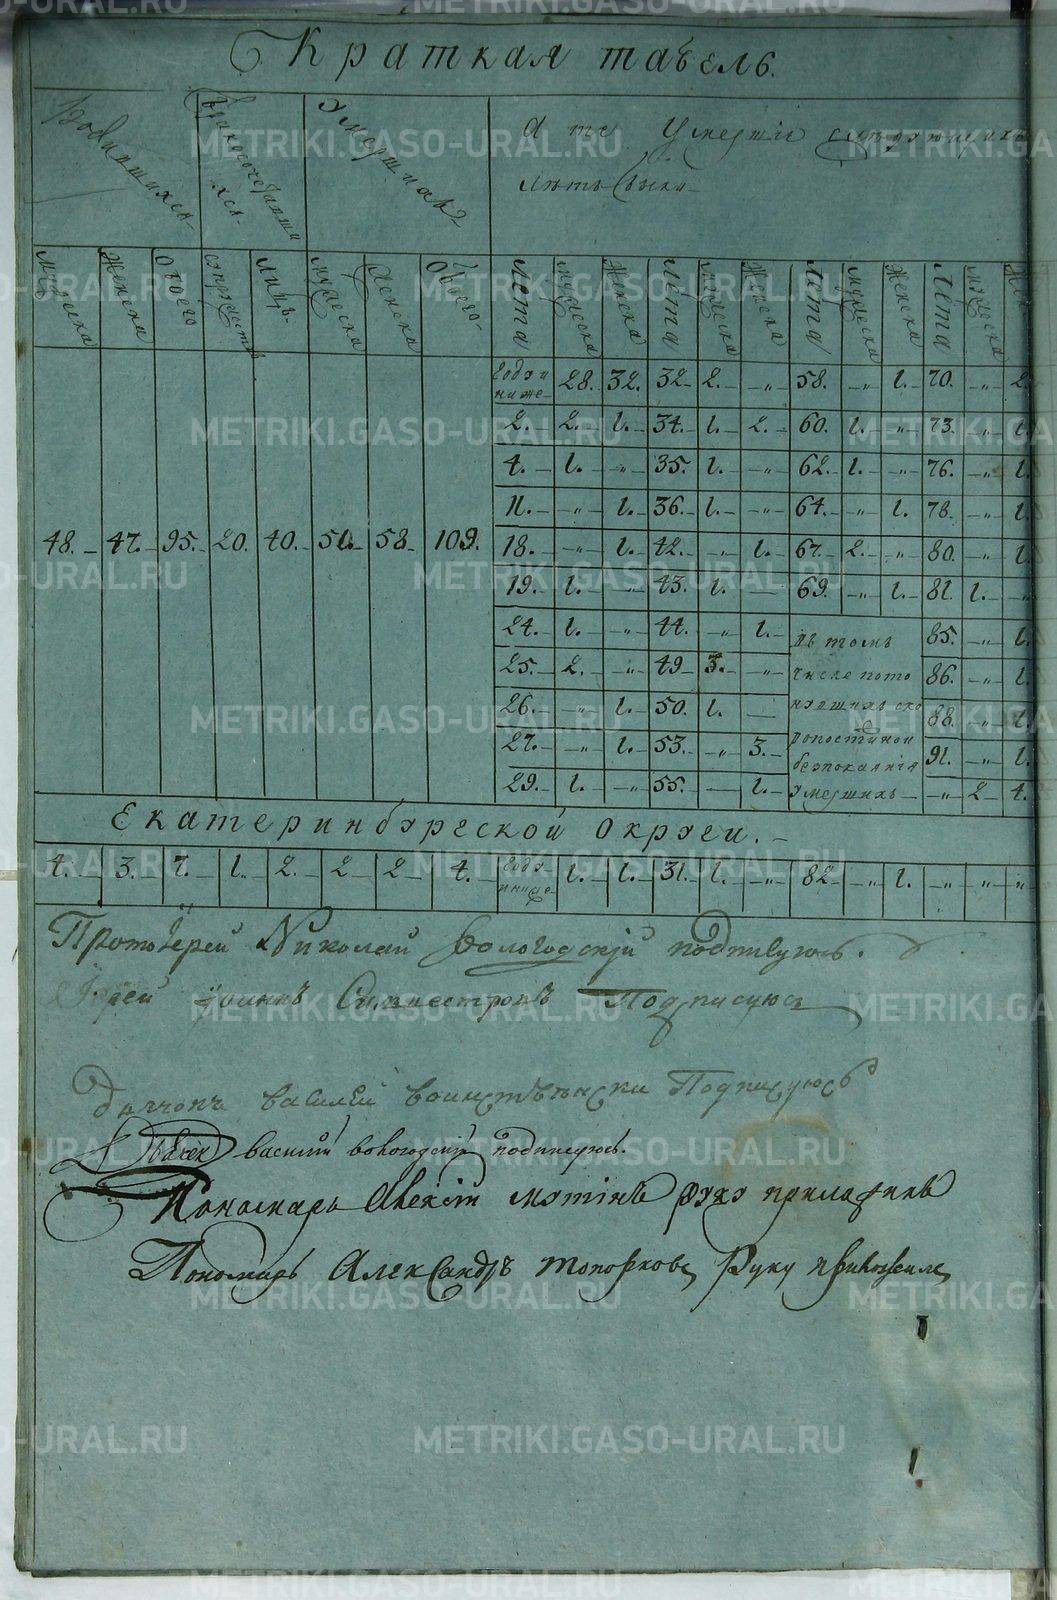 Краткая табель.
Родившихся
Бракосочетавшихся
Умершихъ
А те Умершіе
летъ были
мужеска Женска Обоего супружествъ лицъ мужеска Женска Обоего Лета мужеска Женска Лета мужеска Женска Лета мужеска Женска Лета мужеска
48. 47. 95. 20. 40. 51. 58. 109.
Году и ниже 28. 32. 32. 2. „ 58. „ 1. 70. „ 2.
2. 2. 1. 34. 1. 2. 60. 1. „ 73. „ 1.
4. 1. „ 35. 1. „ 62. 1. „ 76. „ 1.
11. „ 1. 36. 1. „ 64. „ 1. 78. „ 1.
18. „ 1. 42. „ 1. 67. 2. „ 80. „ 1.
19. 1. „ 43. 1. — 69. „ 1. 81. 1.
24. 1. „ 44. „ 1. въ томъ 85. „ 1.
25. 2. „ 49 3. „ числе пото 86. „ 1.
26. „ 1. 50. 1. — нувшихъ ско 88. „ 1.
27. „ 1. 53. „ 3. ропостижно и 91. „ 1.
безпокаянія
29. 1. „ 55. — 1. умершихъ „ 2 4.
Екатеринбургской Округи.
4. 3. 7. 1. 2. 2. 2. 4. Году и ниже 1. 1. 31. 1. „ 82 „ 1. „ „ „
Протоіерей Николай Вологодскій подписуюсь.
Іерей Іоаннъ Сильвестровъ Подписуюсь
Діаконъ василей воинственски Подписуюсь
Дьячек василий вологодский подписуюсь.
Пономарь Алексій мутінъ руку приложилъ
Пономарь Александръ топорковъ Руку приложилъ
METRIKI.GASO-URAL.RU